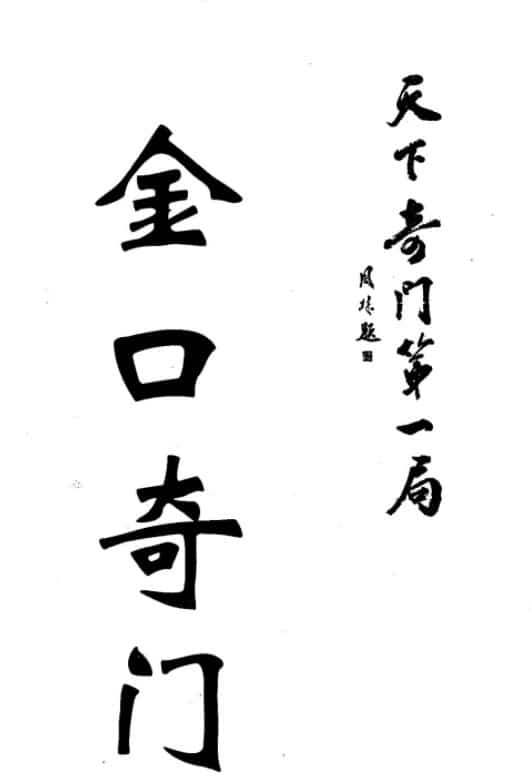 天下奇門第一局
题
金口奇门